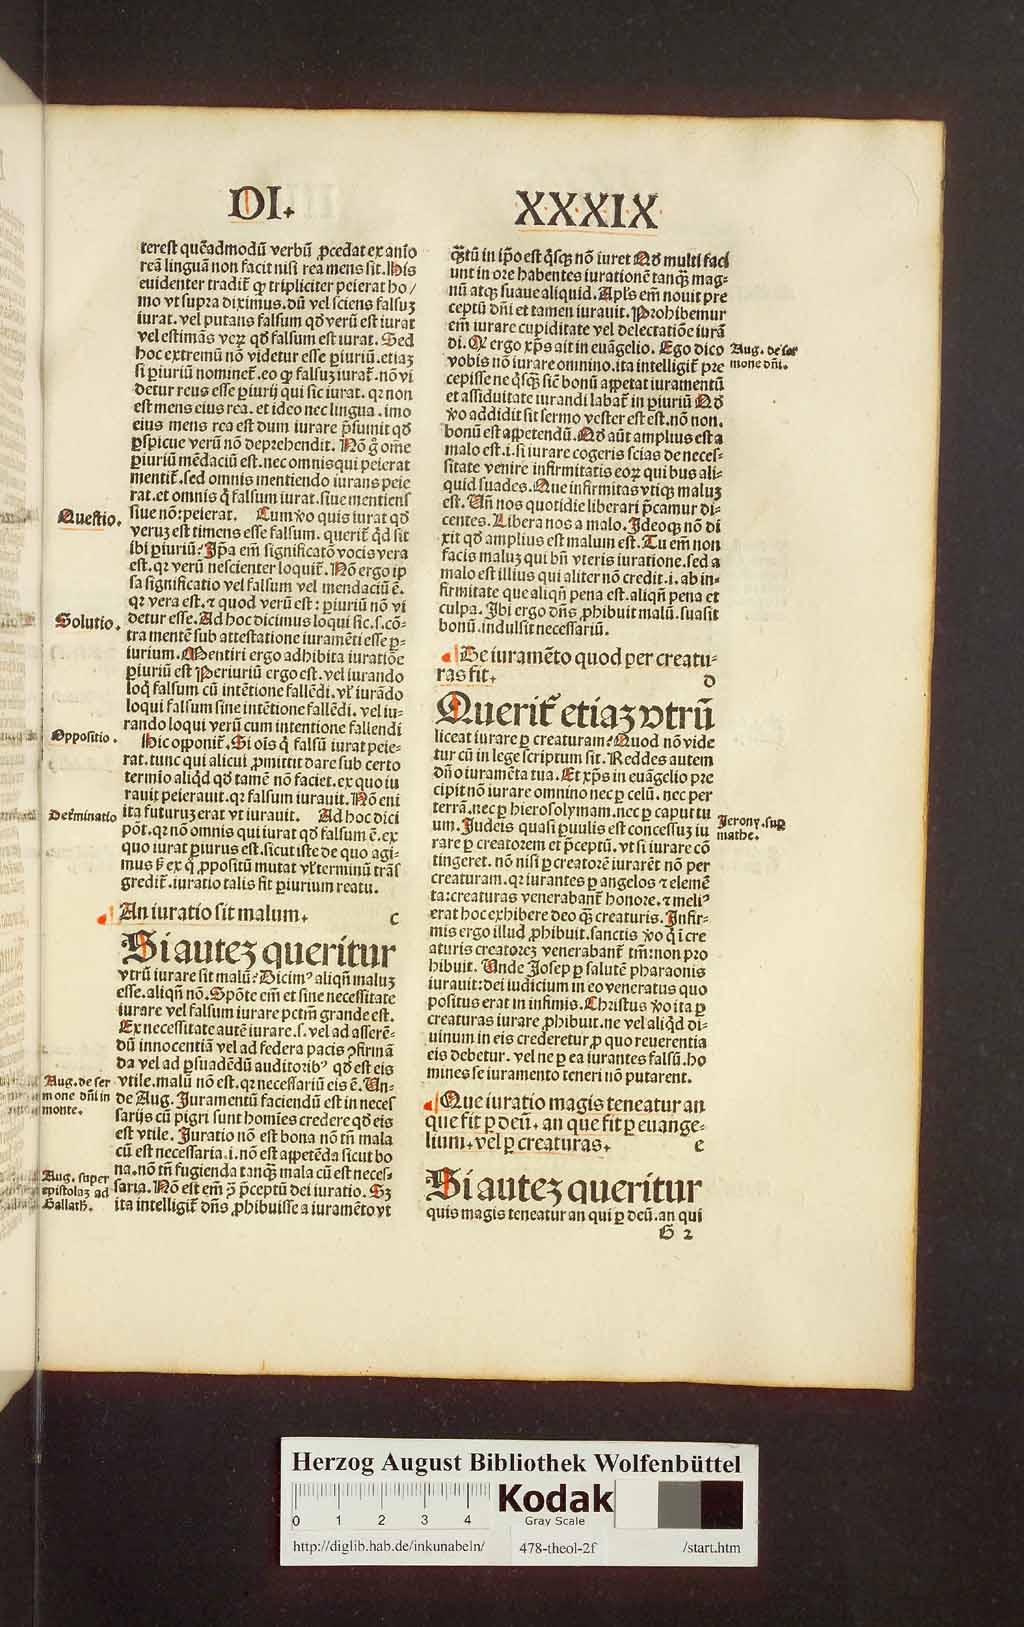 DI.
XXXIX
terest quēadmodū verbū ꝓcedat ex anīo
reā linguā non facit nisi rea mens sit. His
euidenter tradit᷑ ꝙ tripliciter peierat ho/
mo vt supra diximus. dū vel sciens falsuꝫ
iurat. vel putans falsum qđ verū est iurat
vel estimās veꝝ qđ falsum est iurat. Sed
hoc extremū nō videtur esse ꝑiuriū. etiaꝫ
si ꝑiuriū nominet᷑. eo ꝙ falsuꝫ iurat᷑. nō vi
detur reus esse ꝑiurij qui sic iurat. qꝛ non
est mens eius rea. et ideo nec lingua. imo
eius mens rea est dum iurare p̄sumit qđ
ꝑspicue verū nō deprehendit. Nō g̊ om̄e
ꝑiuriū mēdaciū est. nec omnis qui peierat
mentit᷑. sed omnis mentiendo iurans peie
rat. et omnis q̇ falsum iurat. siue mentiens
siue nō: peierat. Cum ꝟo quis iurat qđ
veruꝫ est timens esse falsum. querit᷑ qđ sit
ibi ꝑiuriū? Ip̄a em̄ significatō vocis vera
est. qꝛ verū nescienter loquit᷑. Nō ergo ip
sa significatio vel falsum vel mendaciū ē.
qꝛ vera est. ⁊ quod verū est: ꝑiuriū nō vi
detur esse. Ad hoc dicimus loqui sic. s. cō-
tra mentē sub attestatione iuramēti esse ꝑ-
iurium. Mentiri ergo adhibita iuratiōe
ꝑiuriū est Periuriū ergo est. vel iurando
loq̇ falsum cū intētione fallēdi. vl̓ iurādo
loqui falsum sine intētione fallēdi. vel iu-
rando loqui verū cum intentione fallendi
Hic opponit᷑. Si ois q̇ falsū iurat peie-
rat. tunc qui alicui ꝓmittit dare sub certo
termio aliqd qđ tamē nō faciet. ex quo iu
rauit peierauit. qꝛ falsum iurauit. Nō eni
ita futuruꝫ erat vt iurauit. Ad hoc dici
pōt. qꝛ nō omnis qui iurat qđ falsum ē. ex
quo iurat ꝑiurus est. sicut iste de quo agi-
mus ꝫ ex q̊ ꝓpositū mutat vl̓ terminū trās
gredit᷑. iuratio talis fit ꝑiurium reatu.
An iuratio sit malum. c
Si auteꝫ queritur
vtrū iurare sit malū? Dicimꝰ aliqn̄ maluꝫ
esse. aliqn̄ nō. Spōte em̄ et sine necessitate
iurare vel falsum iurare pctm̄ grande est.
Ex necessitate autē iurare. s. vel ad asserē-
dū innocentiā vel ad federa pacis ꝯfirmā
da vel ad ꝑsuadēdū auditoribꝰ qđ est eis
vtile. malū nō est. qꝛ necessariū eis ē. Un-
de Aug. Juramentū faciendū est in neces
sarijs cū pigri sunt homīes credere qđ eis
est vtile. Juratio nō est bona nō tm̄ mala
cū est necessaria. i. nō est appetēda sicut bo
na. nō tm̄ fugienda tanqꝫ mala cū est neces-
saria. Nō est em̄ ꝯ̄ p̄ceptū dei iuratio. Sꝫ
ita intelligit᷑ dn̄s ꝓhibuisse a iuramēto vt
Questio.
Solutio.
Oppositio.
Det᷑minatio
Aug. de ser
mone dn̄i in
monte.
Aug. super
epistolaꝫ ad
Gallath.
qꝫtū in ip̄o est q̇sqꝫ nō iuret Nō multi faci
unt in ore habentes iurationē tanqꝫ mag-
nū atqꝫ suaue aliquid. Apl̓s em̄ nouit pre
ceptū dn̄i et tamen iurauit. Prohibemur
em̄ iurare cupiditate vel delectatiōe iurā
di. Qꝛ ergo xp̄s ait in euāgelio. Ego dico
vobis nō iurare omnino. ita intelligit᷑ pre
cepisse ne q̇sqꝫ sic̄ bonū appetat iuramentū
et assiduitate iurandi labat᷑ in ꝑiuriū Qđ
ꝟo addidit sit sermo vester est est. nō non.
bonū est appetendū. Qđ aūt amplius est a
malo est. i. si iurare cogeris scias de neces-
sitate venire infirmitatis eoꝝ quibus ali-
quid suades. Que infirmitas vtiqꝫ maluꝫ
est. Un̄ nos quotidie liberari p̄camur di-
centes. Libera nos a malo. Ideoqꝫ nō di
xit qđ amplius est malum est. Tu em̄ non
facis maluꝫ qui bn̄ vteris iuratione. sed a
malo est illius qui aliter nō credit. i. ab in-
firmitate que aliqn̄ pena est. aliqn̄ pena et
culpa. Ibi ergo dn̄s ꝓhibuit malū. suasit
bonū. indulsit necessariū.
De iuramēto quod per creatu-
ras fit. D
Querit᷑ etiaꝫ vtrū
liceat iurare ꝑ creaturam? Quod nō vide
tur cū in lege scriptum sit. Reddes autem
dn̄o iuramēta tua. Et xp̄s in euāgelio pre
cipit nō iurare omnino nec ꝑ celū. nec per
terrā. nec ꝑ hierosolymam. nec ꝑ caput tu
um. Judeis quasi ꝑuulis est concessuꝫ iu
rare ꝑ creatorem et p̄ceptū. vt si iurare cō
tingeret. nō nisi ꝑ creatorē iurarēt nō per
creaturam. qꝛ iurantes ꝑ angelos ⁊ elemē
ta: creaturas venerabant᷑ honore. ⁊ meliꝰ
erat hoc exhibere deo qꝫ creaturis. Infir-
mis ergo illud ꝓhibuit. sanctis ꝟo q̇ ī cre
aturis creatoreꝫ venerabant᷑ tm̄: non pro
hibuit. Unde Josep ꝑ salutē pharaonis
iurauit: dei iudicium in eo veneratus quo
positus erat in infimis. Christus ꝟo ita ꝑ
creaturas iurare ꝓhibuit. ne vel aliqd di-
uinum in eis crederetur ꝓ quo reuerentia
eis debetur. vel ne ꝑ ea iurantes falsū. ho
mines se iuramento teneri nō putarent.
Que iuratio magis teneatur an
que fit ꝑ deū. an que fit ꝑ euange-
lium. vel ꝑ creaturas. e
Si auteꝫ queritur
quis magis teneatur an qui ꝑ deū. an qui
G 2
Aug. de ser
mone dn̄i.
Jerony. sup
mathe.
Herzog August Bibliothek Wolfenbüttel
0 1 2 3 4
Kodak
Gray Scale
http://diglib.hab.de/inkunabeln/ 478-theol-2f /start.htm